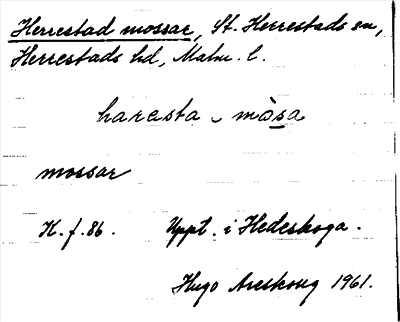 Herrestad mossar, St. Herrestads sn,
Herrestads hd, Malm. l.
harasta mòsa
mossar
K. f. 86. Uppt. i Hedeskoga.
Hugo Areskoug 1961.